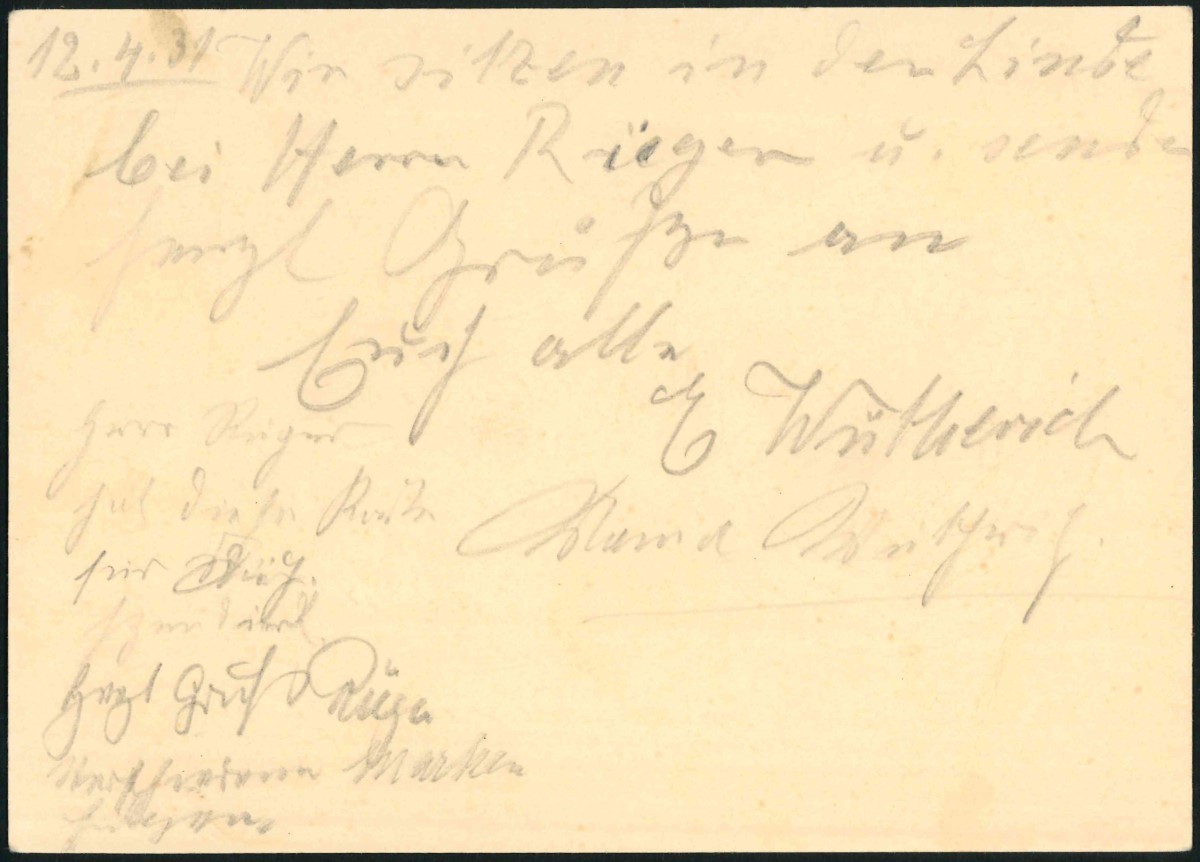 12.4.31 Wir sitzen in der Linde
bei Herrn Rüeger u. senden
herzl Grüße an
Euch alle
E Wütherich
Mama Wütherich.
Herr Rüeger
hat diese Karte
für Euch.
spendiert.
Herzl Gruß Rüger
Verschiedene Marken